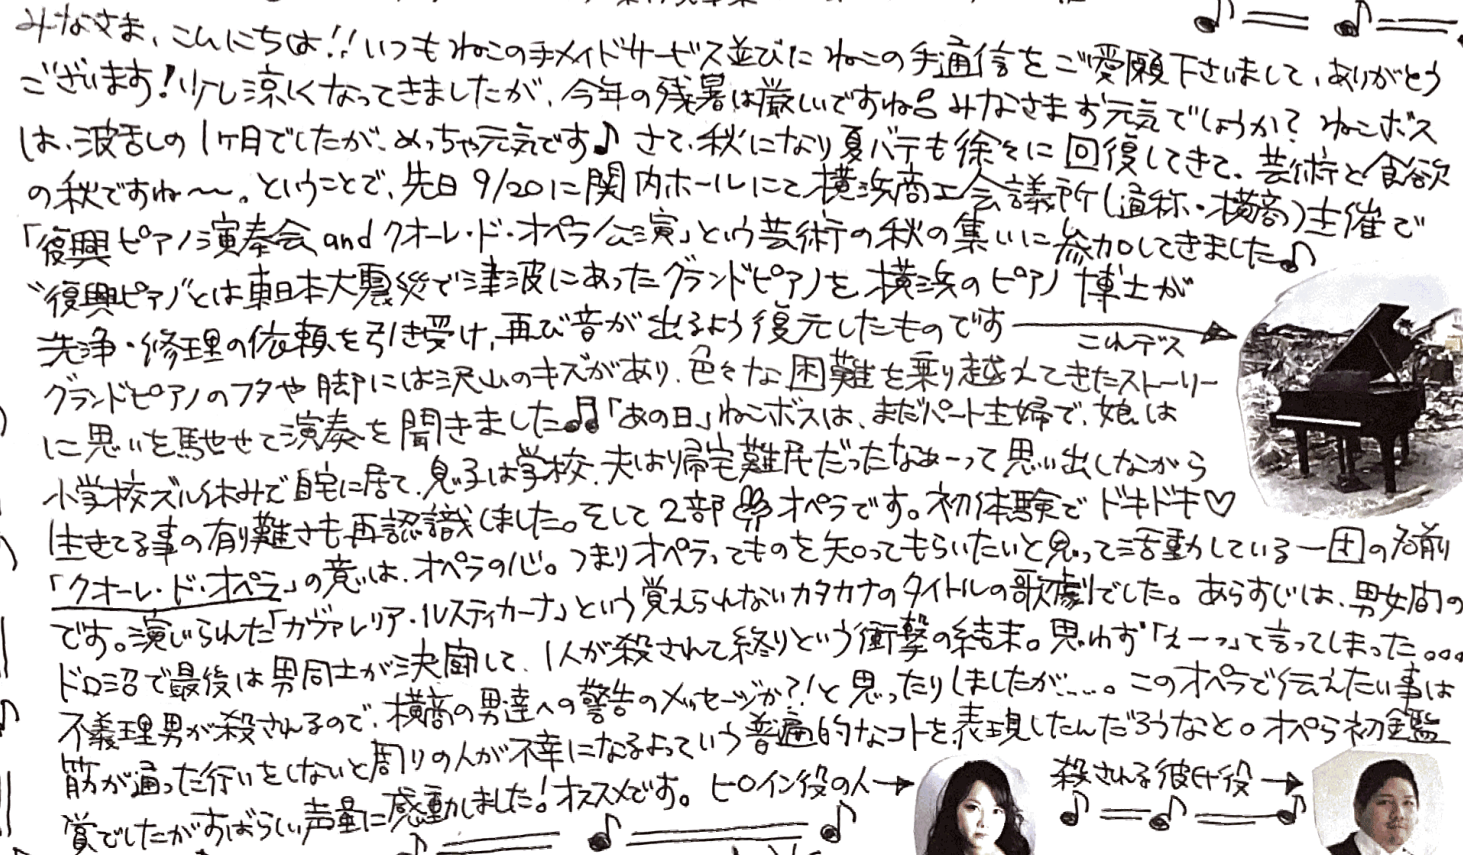 みなさま、こんにちは!!いつもねこの手メイドサービス並びにねこの手通信をご愛願下さいまして、ありがとう
ございます!少し涼しくなってきましたが、今年の残暑は厳しいですね。みなさまお元気でしょうか?ねこボス
は、波乱の1ヶ月でしたが、めっちゃ元気です♪さて、秋になり夏バテも徐々に回復してきて、芸術と食欲
の秋ですね〜〜。ということで、先日9/20に関内ホールにて横浜商工会議所(通称・横商)主催で
「復興ピアノ演奏会andクオーレ・ド・オペラ公演」という芸術の秋の集いに参加してきました♪
“復興ピアノ”とは東日本大震災で津波にあったグランドピアノを横浜のピアノ博士が
洗浄・修理の依頼を引き受け、再び音が出るよう復元したものです
これデス
グランドピアノのフタや脚には沢山のキズがあり、色々な困難を乗り越えてきたストーリー
に思いを馳せて演奏を聞きました♫「あの日」ねこボスは、まだパート主婦で、娘は
小学校ズル休みで自宅に居て、息子は学校、夫は帰宅難民だったなぁーって思い出しながら
生きてる事の有り難さも再認識しました。そして2部がオペラです。初体験でドキドキ♡
「クオーレ・ド・オペラ」の意は、オペラの心。つまりオペラってものを知ってもらいたいと思って活動している一団の名前
です。演じられた「カヴァレリア・ルスティカーナ」という覚えられないカタカナのタイトルの歌劇でした。あらすじは、男女間の
ドロ沼で最後は男同士が決闘して、1人が殺されて終りという衝撃の結末。思わず「えーっ」て言ってしまった。。。
不義理男が殺されるので、横商の男達への警告のメッセージか?!と思ったりしましたが…。このオペラで伝えたい事は
筋が通った行いをしないと周りの人が不幸になるよっていう普遍的なコトを表現したんだろうなと。オペラ初鑑
賞でしたがすばらしい声量に感動しました!オススメです。ヒロイン役の人→
殺される彼氏役→